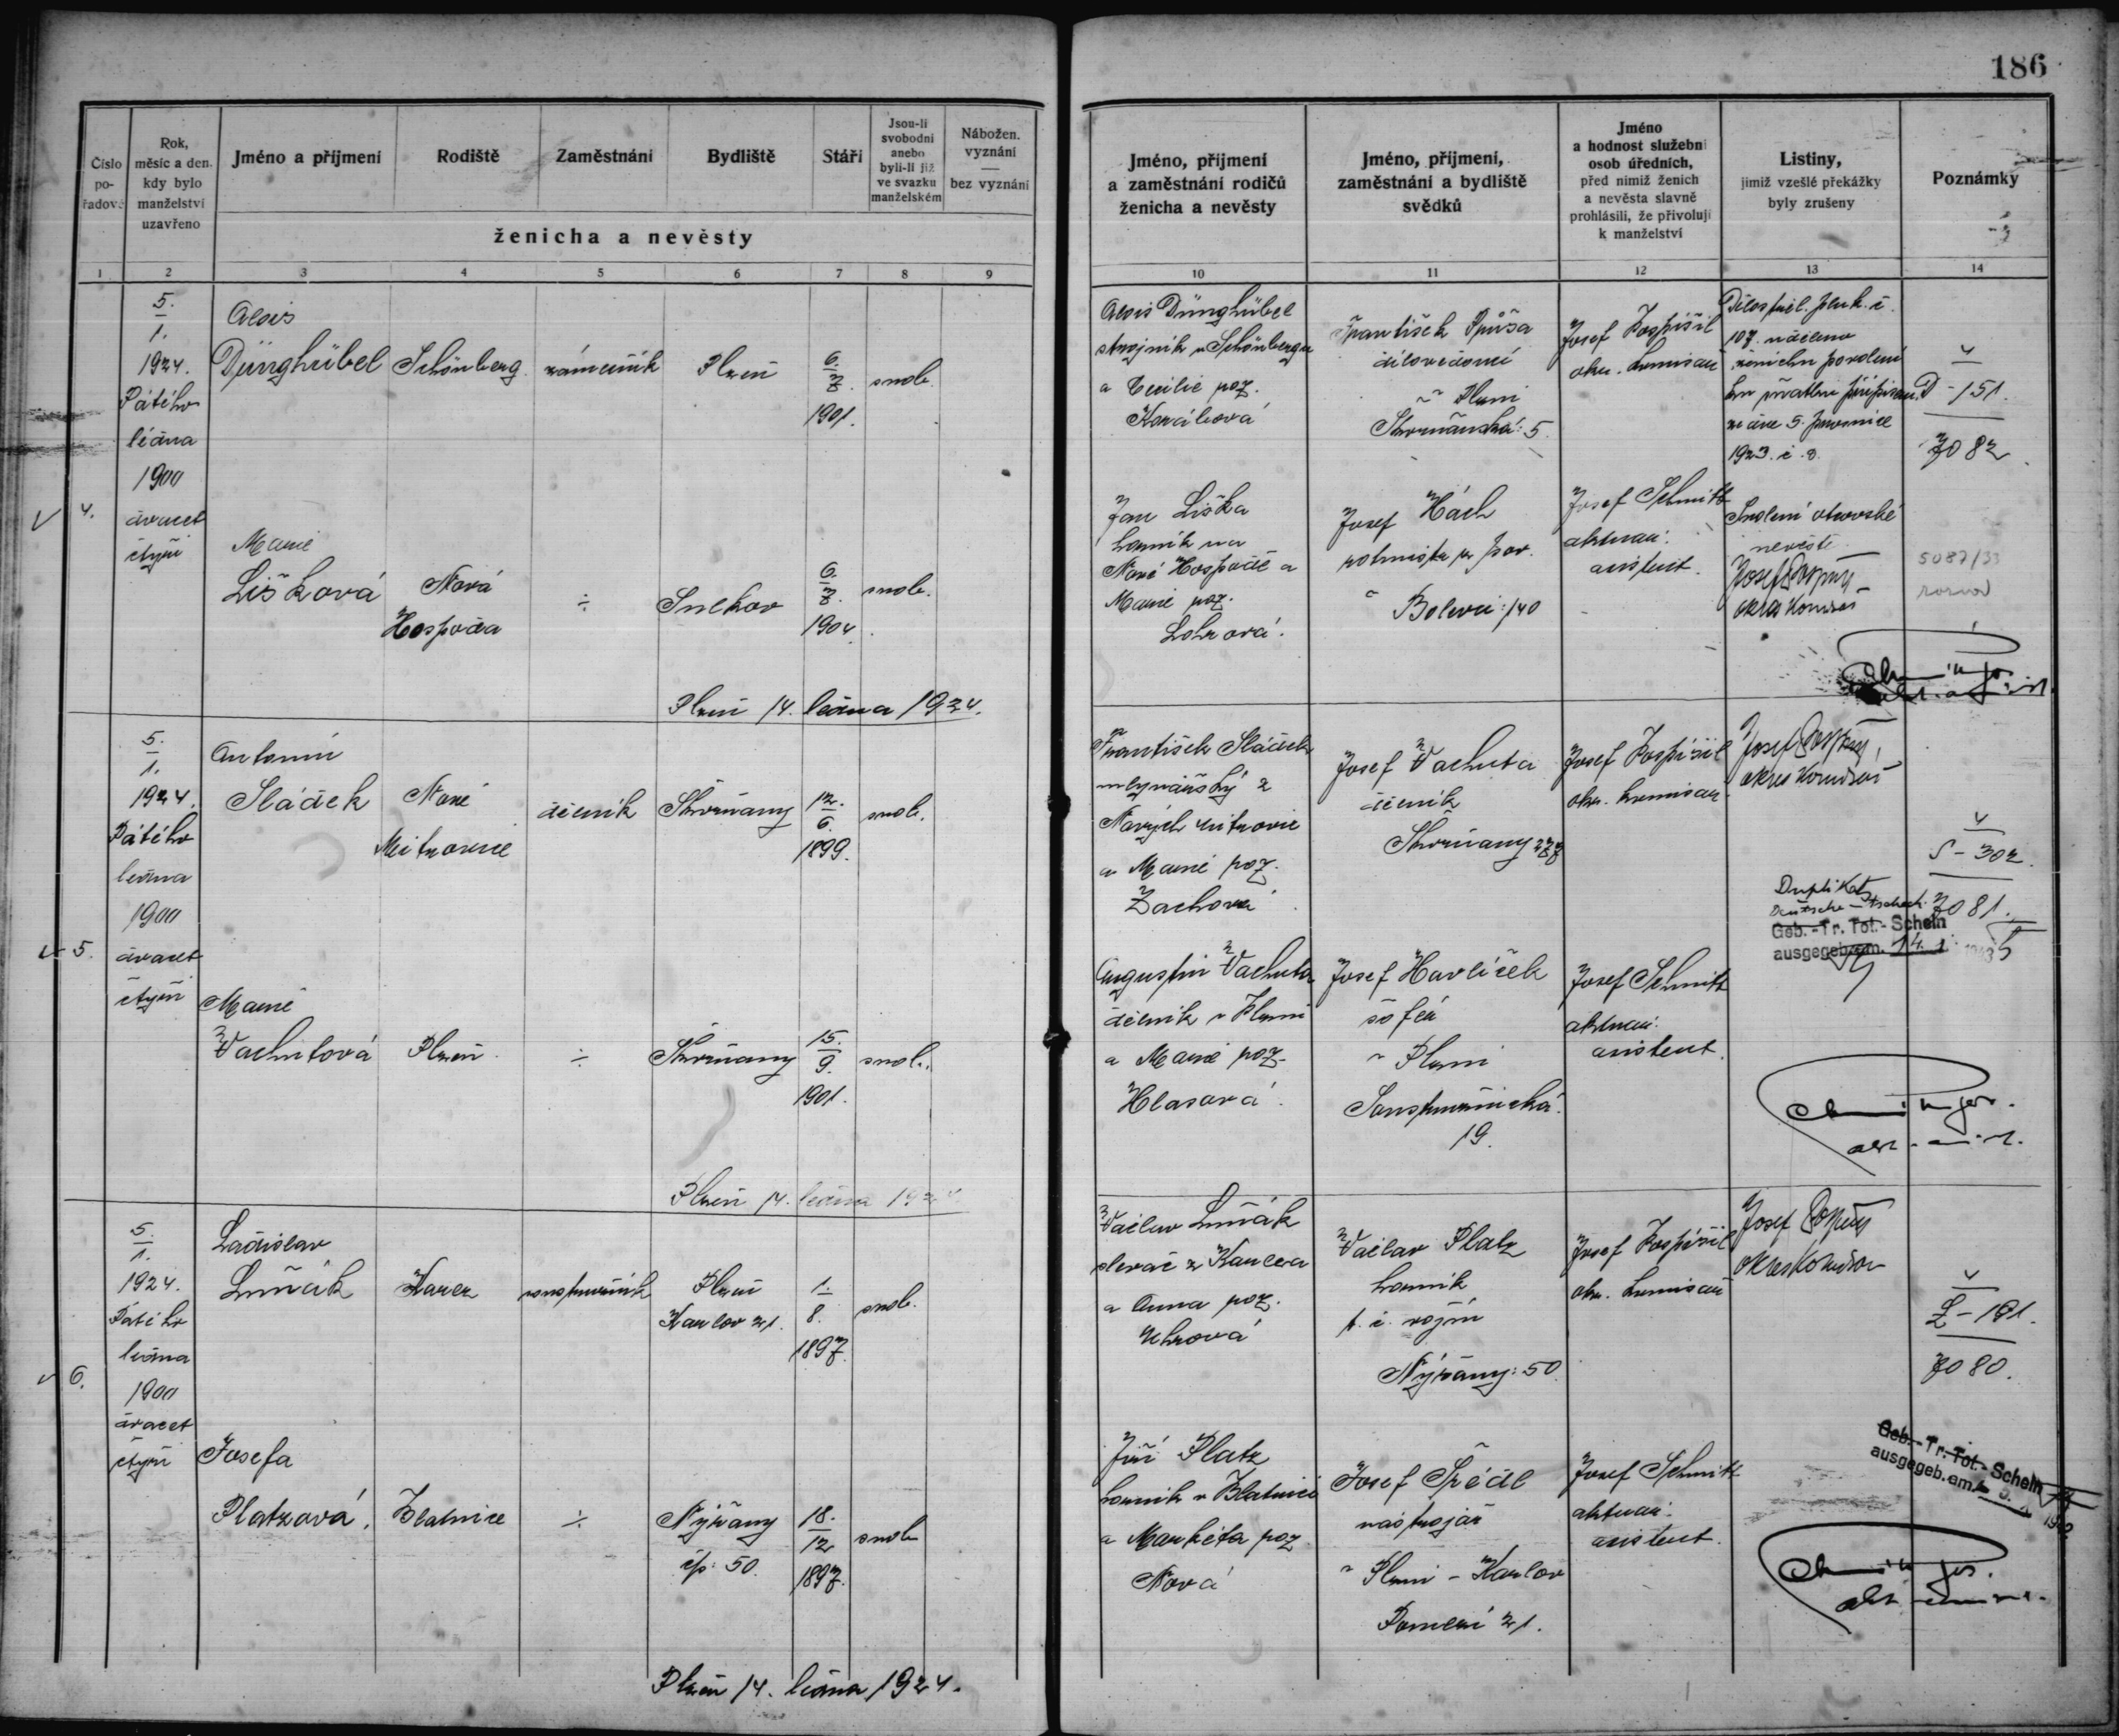 186
Číslo po- řadové
Rok, měsíc a den, kdy bylo manželství uzavřeno
Jméno a příjmení
Rodiště
Zaměstnání
Bydliště
Stáří
Jsou-li svobodni anebo byli-li již ve svazku manželském
Nábožen. vyznání — bez vyznání
ženicha a nevěsty
Jméno, příjmení a zaměstnání rodičů ženicha a nevěsty
Jméno, příjmení, zaměstnání a bydliště svědků
Jméno a hodnost služební osob úředních, před nimiž ženich a nevěsta slavně prohlásili, že přivolují k manželství
Listiny, jimiž vzešlé překážky byly zrušeny
Poznámky
1 2 3 4 5 6 7 8 9 10 11 12 13 14
4.
5.
1.
1924.
Pátého
ledna
1900
dvacet
čtyři
Alois
Dünghübel
Schönberg
zámečník
Plzeň
6.
7.
1901.
svob.
Alois Dünghübel
strojník v Schönbergu
a Cecilie roz.
Kováčová
František Průša
dílovedoucí
v Plzni
Skvrňanská: 5
Josef Pospíšil
okr. komisař
Dělostřel. pluk. č.
107. uděleno
ženichu povolení
1923. č. 8.
4
D - 151.
7082
Marie
Lišková
Nová
Hospoda
÷
Sulkov
6.
7.
1904.
svob.
Jan Liška
horník na
Nové Hospodě a
Marie roz.
Lohrová.
Josef Hách
v Bolevci: 140
Josef Schmitt
aktuár.
asistent.
Svolení otcovské
nevěstě.
Josef Pospíšil
okres komisař
5087/33
rozvod
Plzeň 14. ledna 1924.
5.
5.
1.
1924.
Pátého
ledna
1900
dvacet
čtyři
Antonín
Sládek
Nové
Mitrovice
dělník
Skvrňany
12.
6.
1899.
svob.
František Sládek
mlynářský z
Nových Mitrovic
a Marie roz.
Zachová
Josef Vachuta
dělník
Skvrňany 277
Josef Pospíšil
okr. komisař
Josef Pospíšil
okres komisař
4
S - 302.
7081.
Duplikat
Deutsche - tschech.
Geb.-Tr. Tot.-Schein
ausgegeb. am. 14. 1.
Marie
Vachutová
Plzeň.
÷
Skvrňany
15.
9.
1901.
svob.
Augustin Vachuta
dělník v Plzni
a Marie roz.
Hlasová.
Josef Havlíček
šofér
v Plzni
Soustružnická.
19.
Josef Schmitt
aktuár.
asistent.
Plzeň 14. ledna 1924
6.
5.
1.
1924.
Pátého
ledna
1900
dvacet
čtyři
Ladislav
Lurňák
Karez
soustružník
Plzeň
Karlov 21.
1.
8.
1897.
svob.
Václav Lurňák
slevač z Karezu
a Anna roz.
Uhrová
Václav Platz
horník
t. č. vojín
Nýřany: 50.
Josef Pospíšil
okr. komisař
Josef Pospíšil
okres komisař
4
L - 191.
7080.
Josefa
Platzová.
Blatnice
÷
Nýřany
čp. 50.
18.
12.
1897.
svob.
Jiří Platz
horník v Blatnici
a Markéta roz.
Nová
Josef Špédl
nástrojář
v Plzni - Karlov
Pomezní 21.
Josef Schmitt
aktuár.
asistent.
Geb.-Tr. Tot.-Schein
ausgegeb. am
Plzeň 14. ledna 1924.